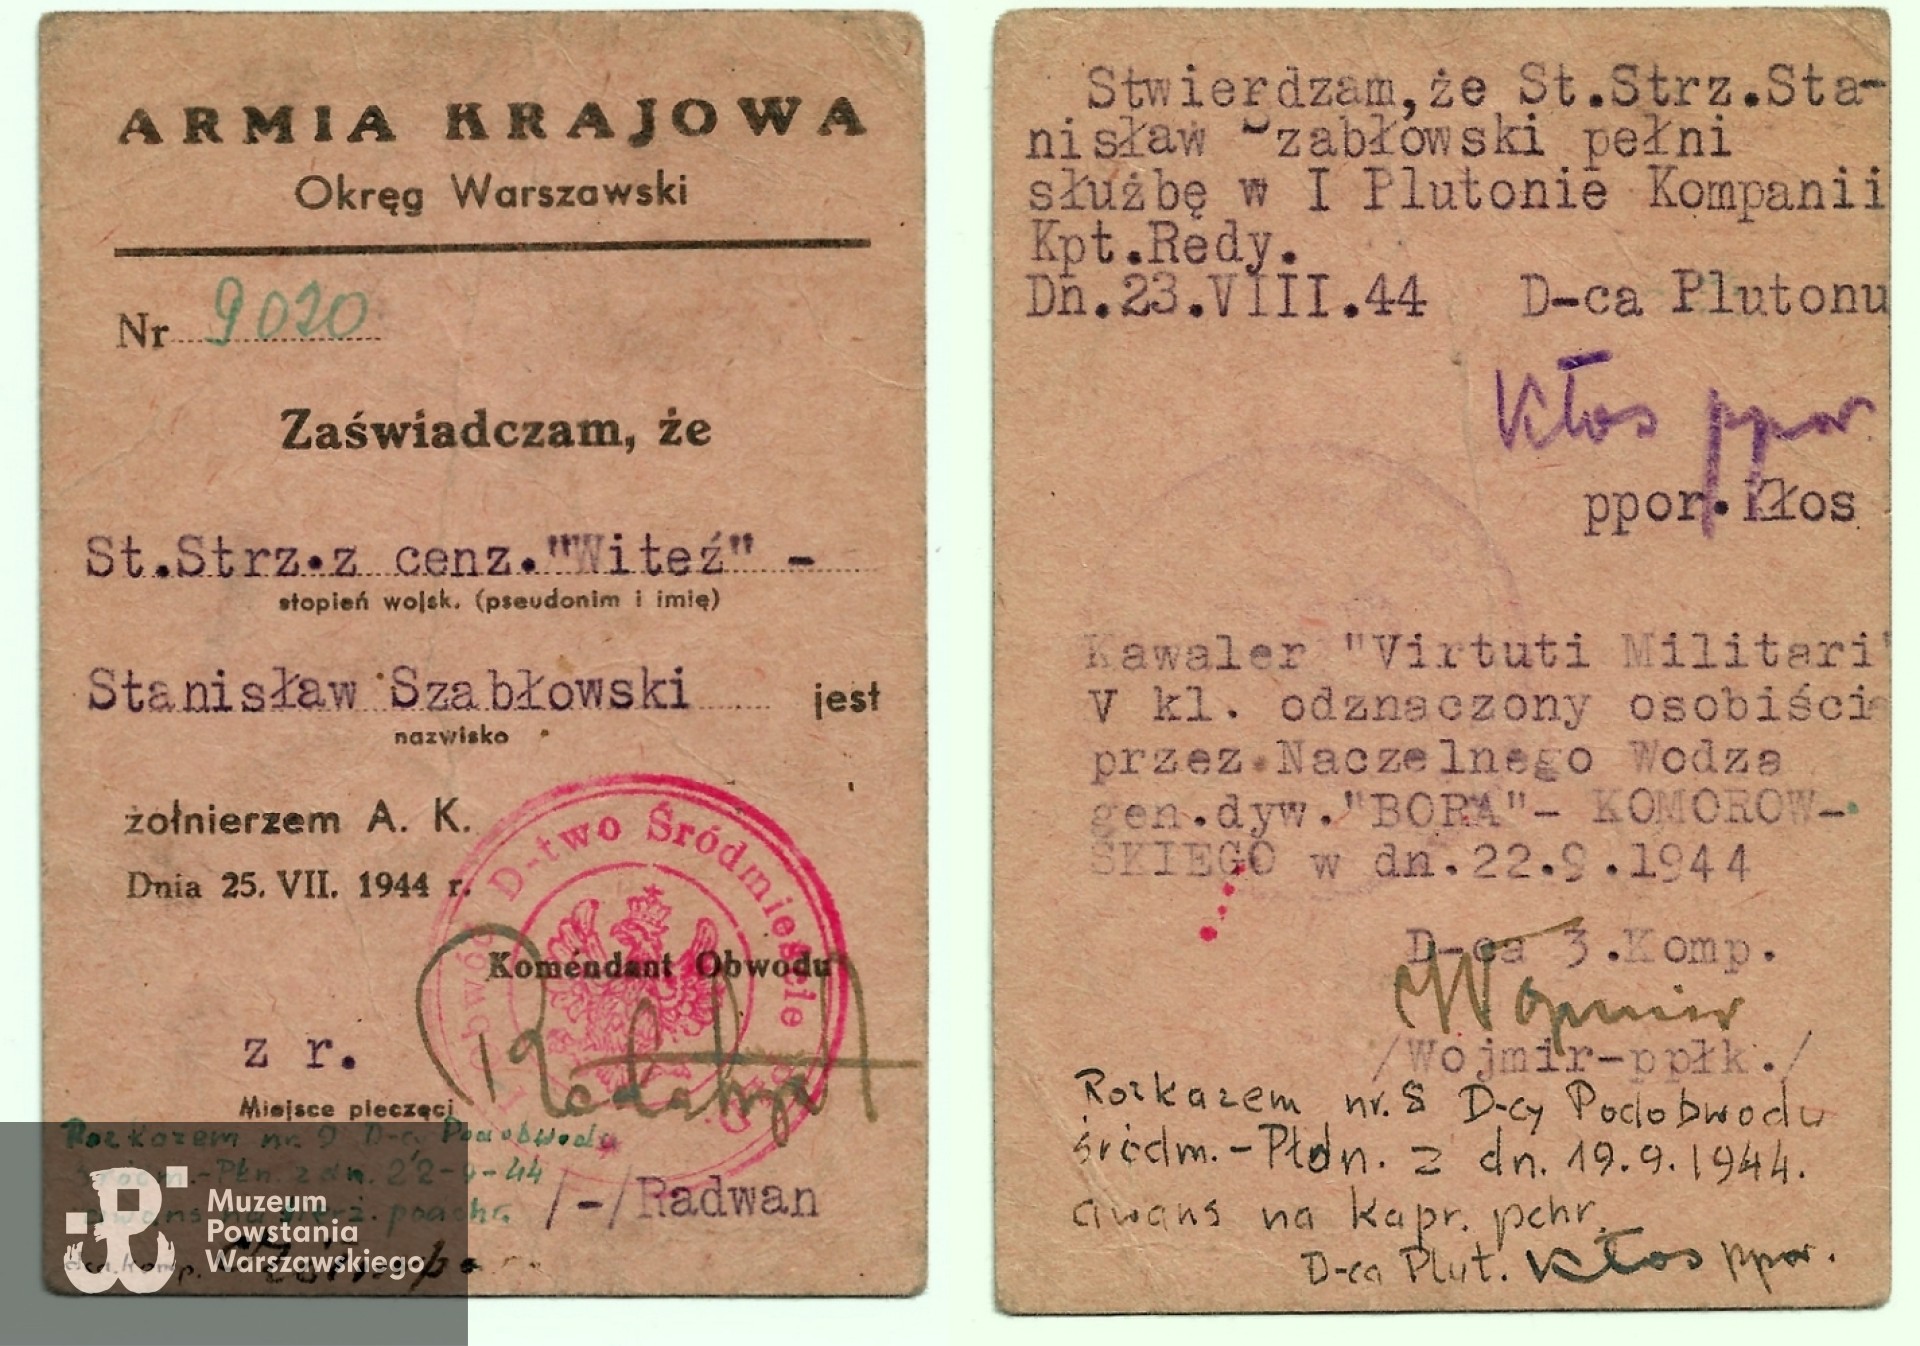 ARMIA KRAJOWA
Okręg Warszawski
Nr 9020
Zaświadczam, że
St.Strz.z cenz."Witeź" -
stopień wojsk. (pseudonim i imię)
Stanisław Szabłowski jest
nazwisko
żołnierzem A. K.
Dnia 25. VII. 1944 r.
D-two Śródmieście
Komendant Obwodu
z r.
Miejsce pieczęci
Rozkazem nr. 9 D-cy Podobwodu
śródm.-Płn. z dn. 22-9-44
/-/Radwan
Muzeum
Powstania
Warszawskiego
Stwierdzam,że St.Strz.Sta-
nisław Szabłowski pełni
służbę w I Plutonie Kompanii
Kpt.Redy.
Dn.23.VIII.44 D-ca Plutonu
Kłos ppor.
ppor.Kłos
Kawaler "Virtuti Militari"
V kl. odznaczony osobiście
przez Naczelnego Wodza
gen.dyw."BORA"- KOMOROW-
SKIEGO w dn.22.9.1944
D-ca 3.Komp.
/Wojmir-ppłk./
Rozkazem nr. 8 D-cy Podobwodu
śródm.-Płdn. z dn. 19.9.1944.
awans na kapr. pchr.
D-ca Plut. Kłos ppor.